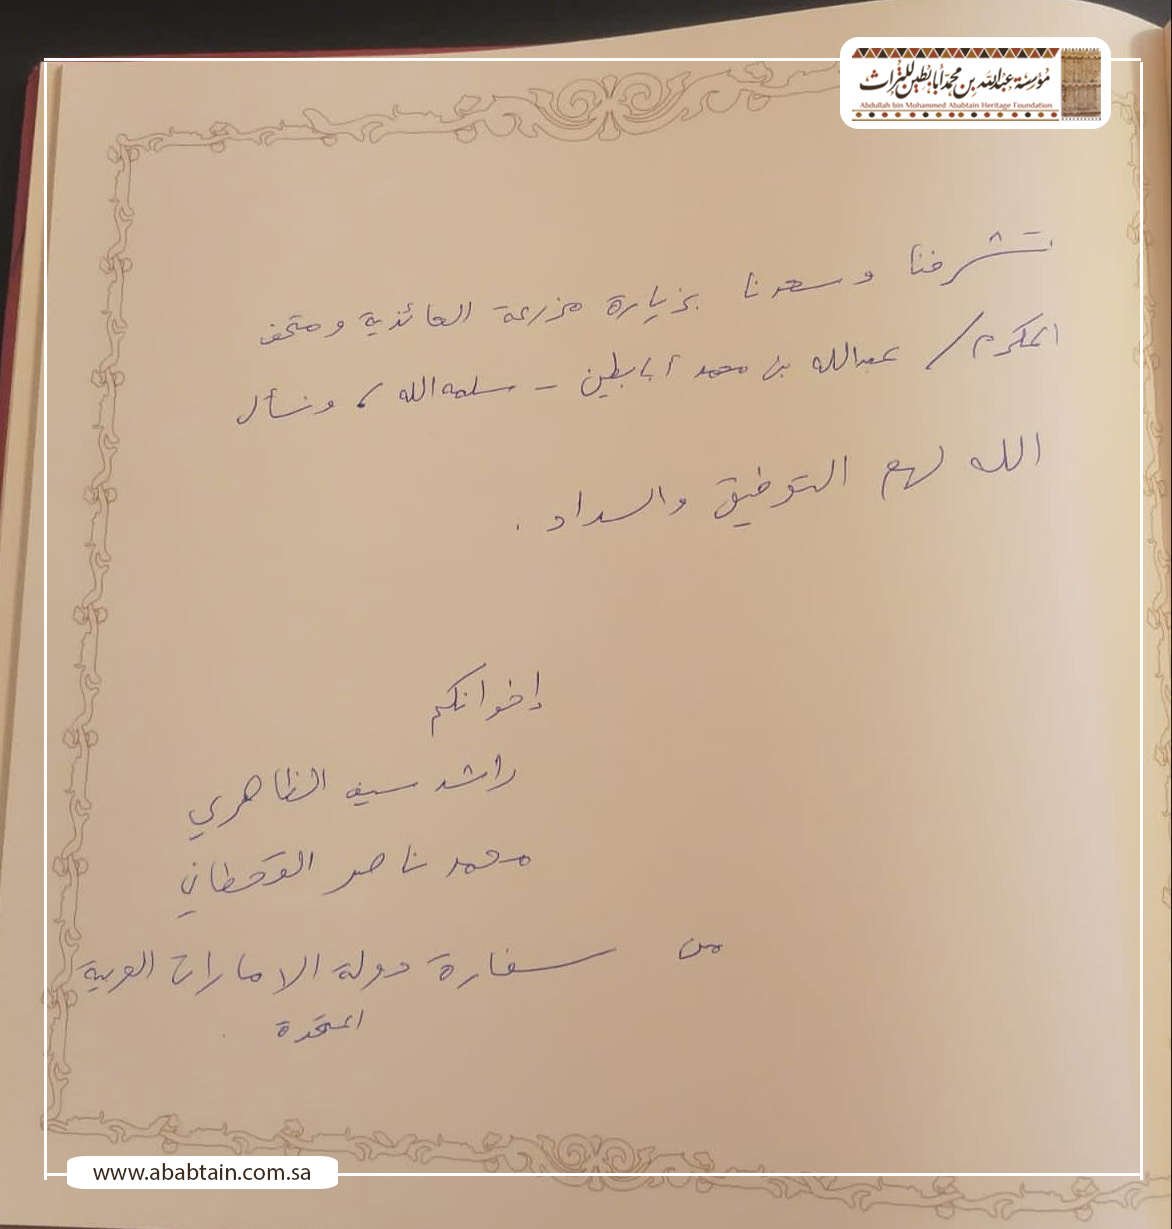 مؤسسة عبدالله بن محمد أبابطين للتراث
Abdullah bin Mohammed Ababtain Heritage Foundation
تشرفنا وسعدنا بزيارة مزرعة العائذية ومتحف
المكرم / عبدالله بن محمد أبابطين - سلمه الله ، ونسأل
الله لهم التوفيق والسداد .
إخوانكم
راشد سيف الظاهري
محمد ناصر القحطاني
من سفارة دولة الامارات العربية
المتحدة .
www.ababtain.com.sa